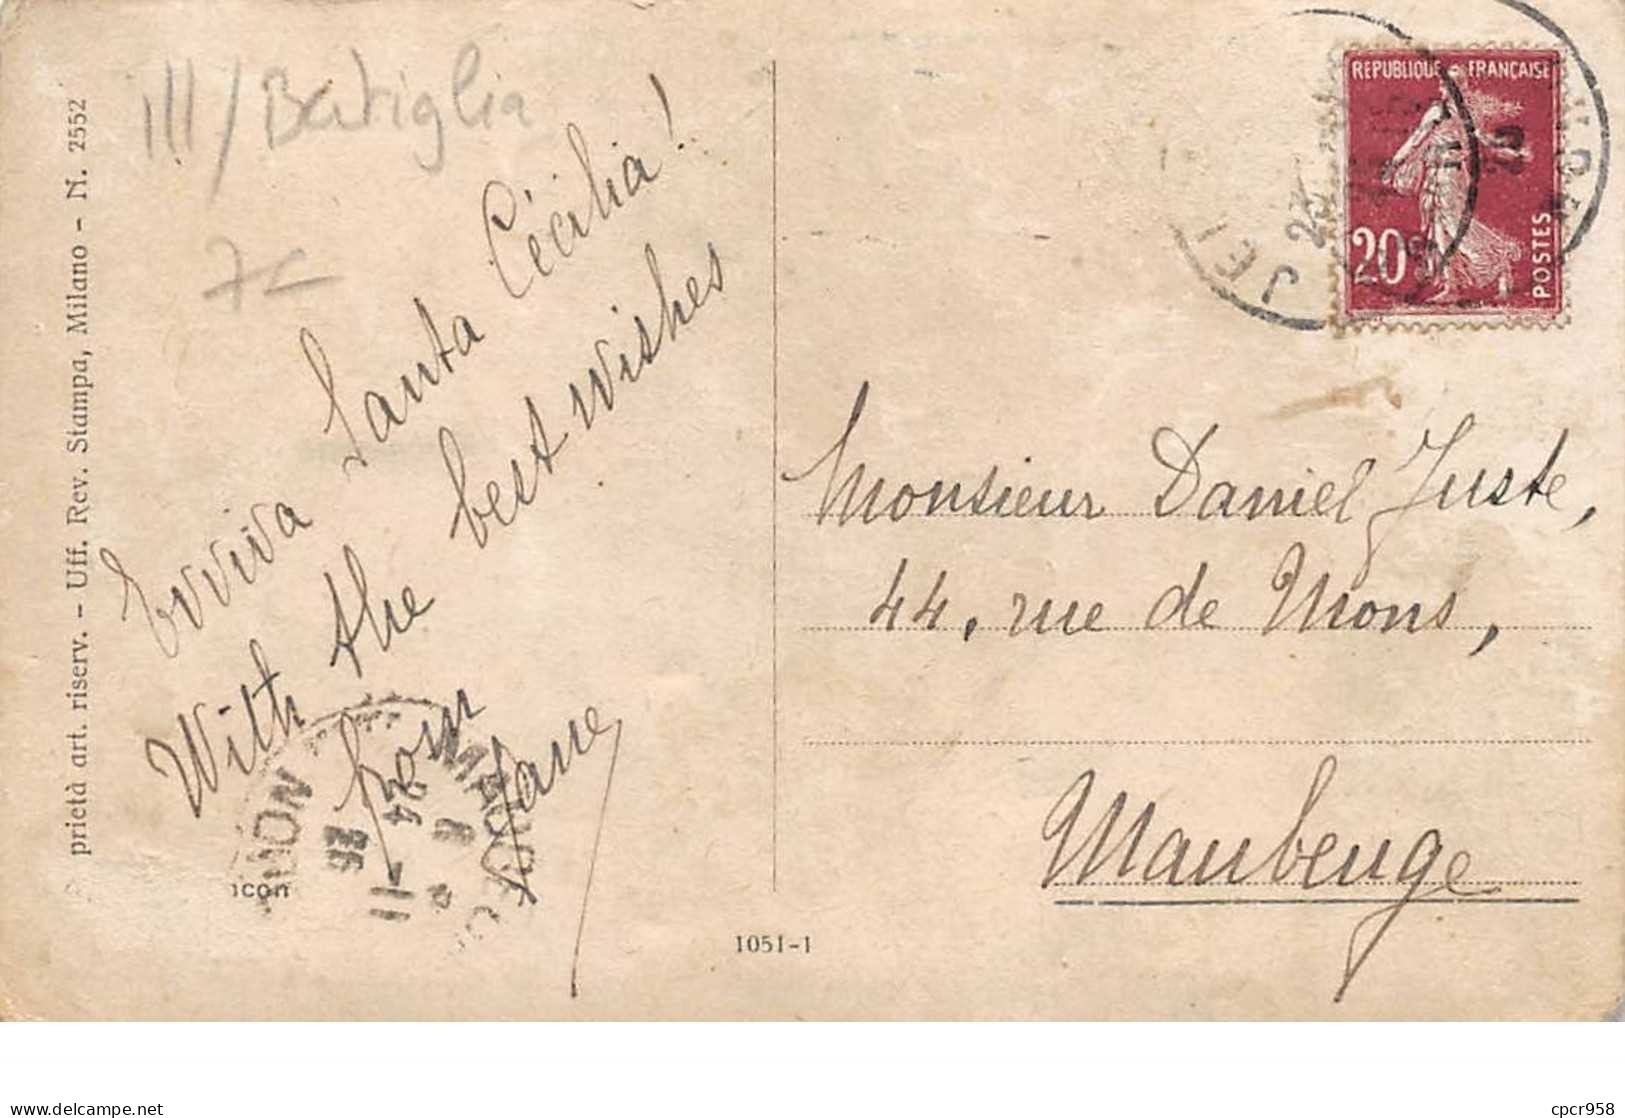 III/Batiglia
7-
prietà art. riserv. - Uff. Rev. Stampa, Milano - N. 2552
Evviva Santa Cécilia!
With the best wishes
from Jane
icon
1051-1
REPUBLIQUE FRANÇAISE
20
POSTES
Monsieur Daniel Juste,
44, rue de Mons,
Maubeuge
MAUBEUGE
24 - 11
26
cpcr958